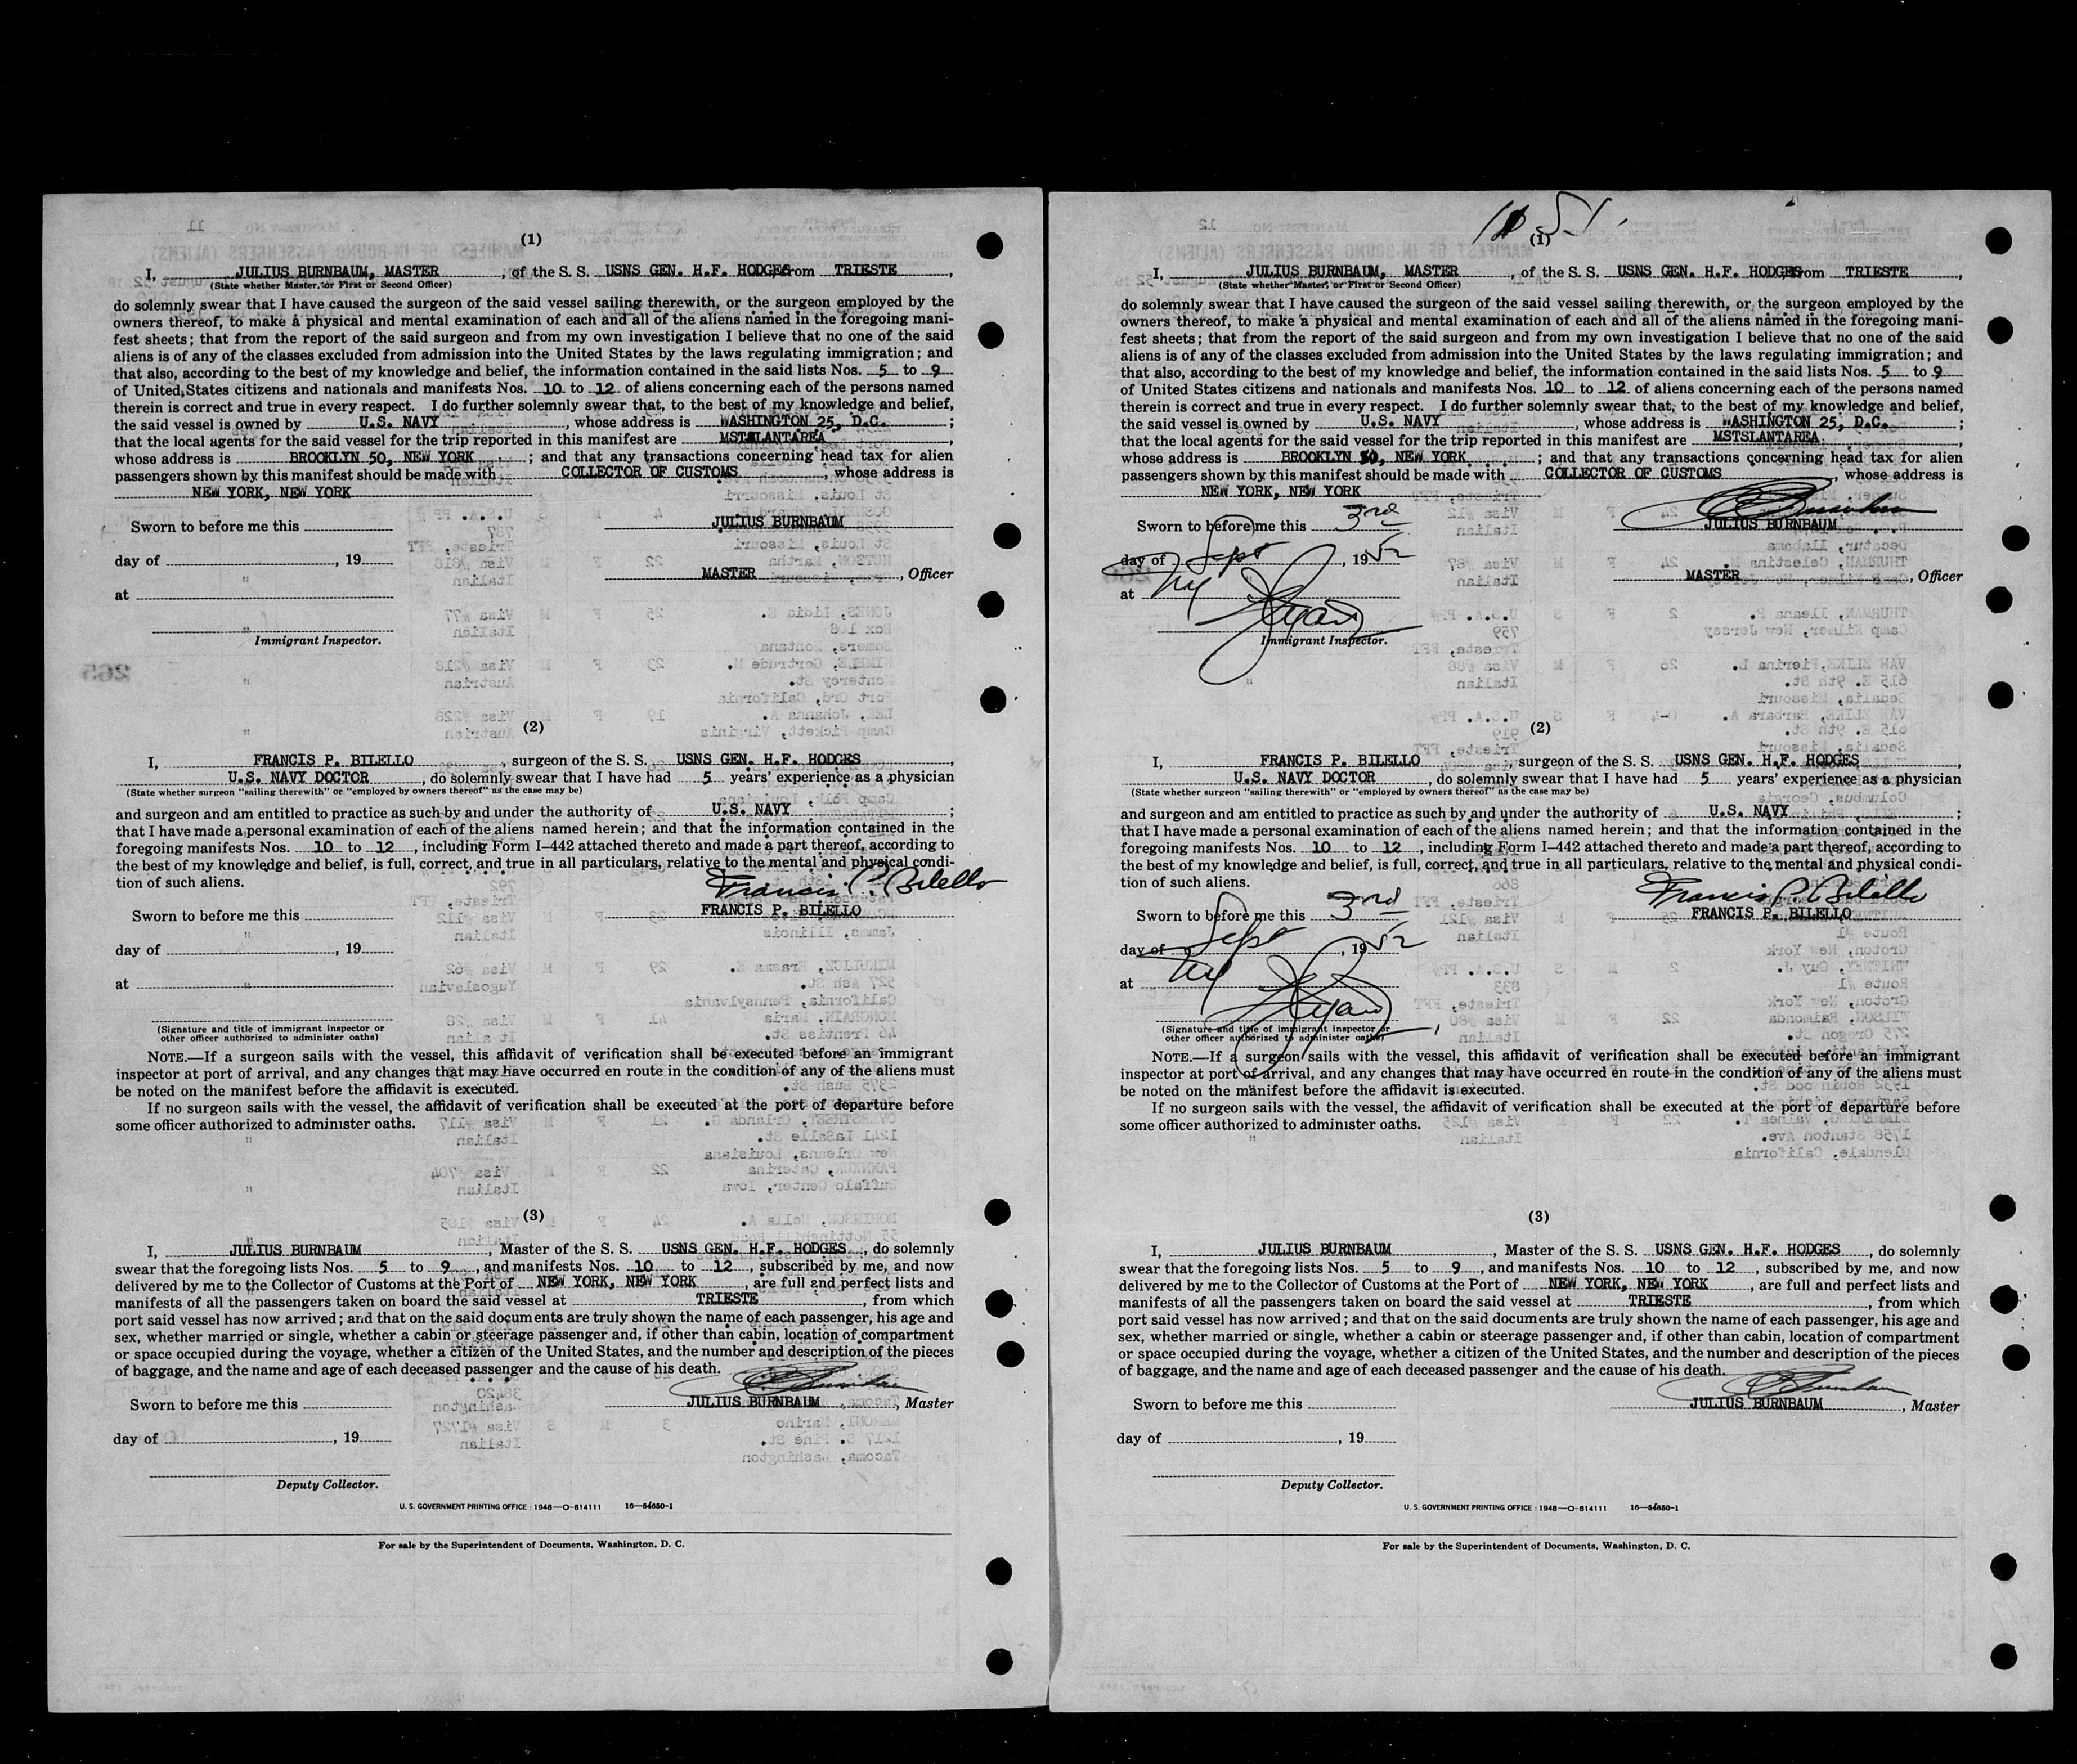 (1)
I, JULIUS BURNBAUM, MASTER , of the S. S. USNS GEN. H.F. HODGES from TRIESTE ,
(State whether Master, or First or Second Officer)
do solemnly swear that I have caused the surgeon of the said vessel sailing therewith, or the surgeon employed by the
owners thereof, to make a physical and mental examination of each and all of the aliens named in the foregoing mani-
fest sheets; that from the report of the said surgeon and from my own investigation I believe that no one of the said
aliens is of any of the classes excluded from admission into the United States by the laws regulating immigration; and
that also, according to the best of my knowledge and belief, the information contained in the said lists Nos. 5 to 9
of United States citizens and nationals and manifests Nos. 10 to 12 of aliens concerning each of the persons named
therein is correct and true in every respect. I do further solemnly swear that, to the best of my knowledge and belief,
the said vessel is owned by U.S. NAVY , whose address is WASHINGTON 25, D.C. ;
that the local agents for the said vessel for the trip reported in this manifest are MSTSLANTAREA ,
whose address is BROOKLYN 50, NEW YORK ; and that any transactions concerning head tax for alien
passengers shown by this manifest should be made with COLLECTOR OF CUSTOMS , whose address is
NEW YORK, NEW YORK
Sworn to before me this JULIUS BURNBAUM
day of , 19
MASTER , Officer
at
Immigrant Inspector.
(2)
I, FRANCIS P. BILELLO , surgeon of the S. S. USNS GEN. H.F. HODGES ,
U.S. NAVY DOCTOR , do solemnly swear that I have had 5 years' experience as a physician
(State whether surgeon "sailing therewith" or "employed by owners thereof" as the case may be)
and surgeon and am entitled to practice as such by and under the authority of U.S. NAVY ;
that I have made a personal examination of each of the aliens named herein; and that the information contained in the
foregoing manifests Nos. 10 to 12 , including Form I-442 attached thereto and made a part thereof, according to
the best of my knowledge and belief, is full, correct, and true in all particulars, relative to the mental and physical condi-
tion of such aliens.
Francis P. Bilello
Sworn to before me this FRANCIS P. BILELLO
day of , 19
at
(Signature and title of immigrant inspector or
other officer authorized to administer oaths)
NOTE.—If a surgeon sails with the vessel, this affidavit of verification shall be executed before an immigrant
inspector at port of arrival, and any changes that may have occurred en route in the condition of any of the aliens must
be noted on the manifest before the affidavit is executed.
If no surgeon sails with the vessel, the affidavit of verification shall be executed at the port of departure before
some officer authorized to administer oaths.
(3)
I, JULIUS BURNBAUM , Master of the S. S. USNS GEN. H.F. HODGES , do solemnly
swear that the foregoing lists Nos. 5 to 9 , and manifests Nos. 10 to 12 , subscribed by me, and now
delivered by me to the Collector of Customs at the Port of NEW YORK, NEW YORK , are full and perfect lists and
manifests of all the passengers taken on board the said vessel at TRIESTE , from which
port said vessel has now arrived; and that on the said documents are truly shown the name of each passenger, his age and
sex, whether married or single, whether a cabin or steerage passenger and, if other than cabin, location of compartment
or space occupied during the voyage, whether a citizen of the United States, and the number and description of the pieces
of baggage, and the name and age of each deceased passenger and the cause of his death.
Sworn to before me this JULIUS BURNBAUM , Master
day of , 19
Deputy Collector.
U. S. GOVERNMENT PRINTING OFFICE : 1948—O-814111 16—54650-1
For sale by the Superintendent of Documents, Washington, D. C.
(1)
I, JULIUS BURNBAUM, MASTER , of the S. S. USNS GEN. H.F. HODGES from TRIESTE ,
(State whether Master, or First or Second Officer)
do solemnly swear that I have caused the surgeon of the said vessel sailing therewith, or the surgeon employed by the
owners thereof, to make a physical and mental examination of each and all of the aliens named in the foregoing mani-
fest sheets; that from the report of the said surgeon and from my own investigation I believe that no one of the said
aliens is of any of the classes excluded from admission into the United States by the laws regulating immigration; and
that also, according to the best of my knowledge and belief, the information contained in the said lists Nos. 5 to 9
of United States citizens and nationals and manifests Nos. 10 to 12 of aliens concerning each of the persons named
therein is correct and true in every respect. I do further solemnly swear that, to the best of my knowledge and belief,
the said vessel is owned by U.S. NAVY , whose address is WASHINGTON 25, D.C. ;
that the local agents for the said vessel for the trip reported in this manifest are MSTSLANTAREA ,
whose address is BROOKLYN 50, NEW YORK ; and that any transactions concerning head tax for alien
passengers shown by this manifest should be made with COLLECTOR OF CUSTOMS , whose address is
NEW YORK, NEW YORK
Sworn to before me this 3rd JULIUS BURNBAUM
day of Sept , 1952
MASTER , Officer
at NY
Immigrant Inspector.
(2)
I, FRANCIS P. BILELLO , surgeon of the S. S. USNS GEN. H.F. HODGES ,
U.S. NAVY DOCTOR , do solemnly swear that I have had 5 years' experience as a physician
(State whether surgeon "sailing therewith" or "employed by owners thereof" as the case may be)
and surgeon and am entitled to practice as such by and under the authority of U.S. NAVY ;
that I have made a personal examination of each of the aliens named herein; and that the information contained in the
foregoing manifests Nos. 10 to 12 , including Form I-442 attached thereto and made a part thereof, according to
the best of my knowledge and belief, is full, correct, and true in all particulars, relative to the mental and physical condi-
tion of such aliens.
Francis P. Bilello
Sworn to before me this 3rd FRANCIS P. BILELLO
day of Sept , 1952
at NY
(Signature and title of immigrant inspector or
other officer authorized to administer oaths)
NOTE.—If a surgeon sails with the vessel, this affidavit of verification shall be executed before an immigrant
inspector at port of arrival, and any changes that may have occurred en route in the condition of any of the aliens must
be noted on the manifest before the affidavit is executed.
If no surgeon sails with the vessel, the affidavit of verification shall be executed at the port of departure before
some officer authorized to administer oaths.
(3)
I, JULIUS BURNBAUM , Master of the S. S. USNS GEN. H.F. HODGES , do solemnly
swear that the foregoing lists Nos. 5 to 9 , and manifests Nos. 10 to 12 , subscribed by me, and now
delivered by me to the Collector of Customs at the Port of NEW YORK, NEW YORK , are full and perfect lists and
manifests of all the passengers taken on board the said vessel at TRIESTE , from which
port said vessel has now arrived; and that on the said documents are truly shown the name of each passenger, his age and
sex, whether married or single, whether a cabin or steerage passenger and, if other than cabin, location of compartment
or space occupied during the voyage, whether a citizen of the United States, and the number and description of the pieces
of baggage, and the name and age of each deceased passenger and the cause of his death.
Sworn to before me this JULIUS BURNBAUM , Master
day of , 19
Deputy Collector.
U. S. GOVERNMENT PRINTING OFFICE : 1948—O-814111 16—54650-1
For sale by the Superintendent of Documents, Washington, D. C.